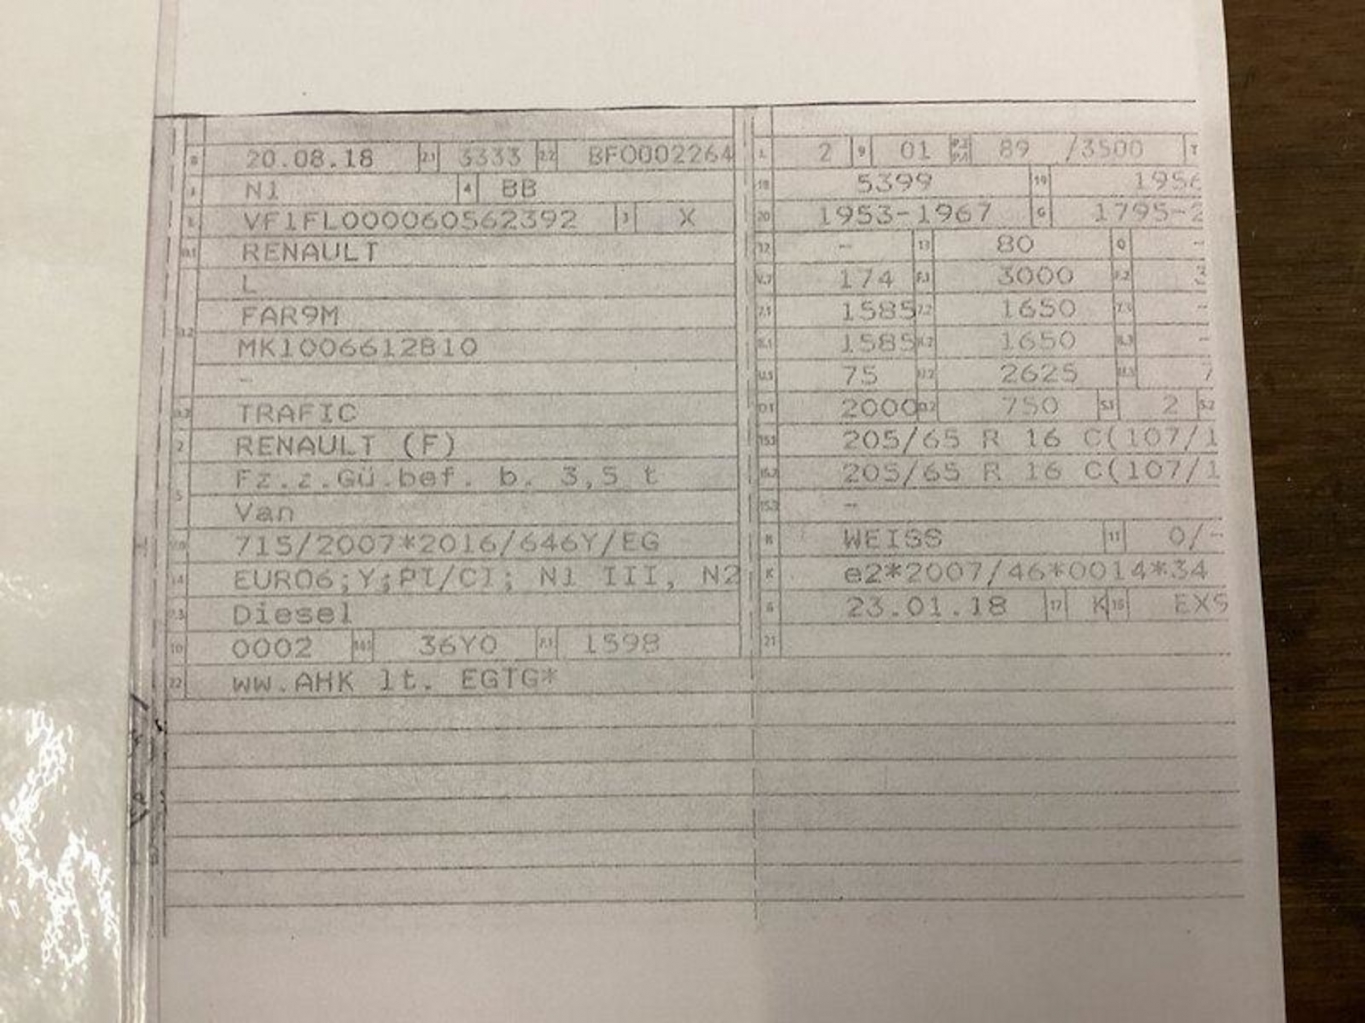 B 20.08.18 2.1 3333 2.2 BFO002264
J N1 4 BB
E VF1FL000060562392 3 X
D.1 RENAULT
L
D.2 FAR9M
MK1006612B10
-
D.3 TRAFIC
2 RENAULT (F)
Fz.z.Gü.bef. b. 3,5 t
5 Van
V.9 715/2007*2016/646Y/EG
14 EURO6;Y;PI/CI; N1 III, N2
P.3 Diesel
10 0002 14.1 36Y0 P.1 1598
22 ww.AHK lt. EGTG*
L 2 9 01 P.2 P.4 89 /3500 T
18 5399 19 1956
20 1953-1967 G 1795-2
12 - 13 80 Q -
V.7 174 F.1 3000 F.2 3
7.1 1585 7.2 1650 7.3 -
8.1 1585 8.2 1650 8.3 -
U.1 75 U.2 2625 U.3 7
O.1 2000 O.2 750 S.1 2 S.2
15.1 205/65 R 16 C(107/1
15.2 205/65 R 16 C(107/1
15.3 -
R WEISS 11 0/-
K e2*2007/46*0014*34
6 23.01.18 17 K 16 EX5
21